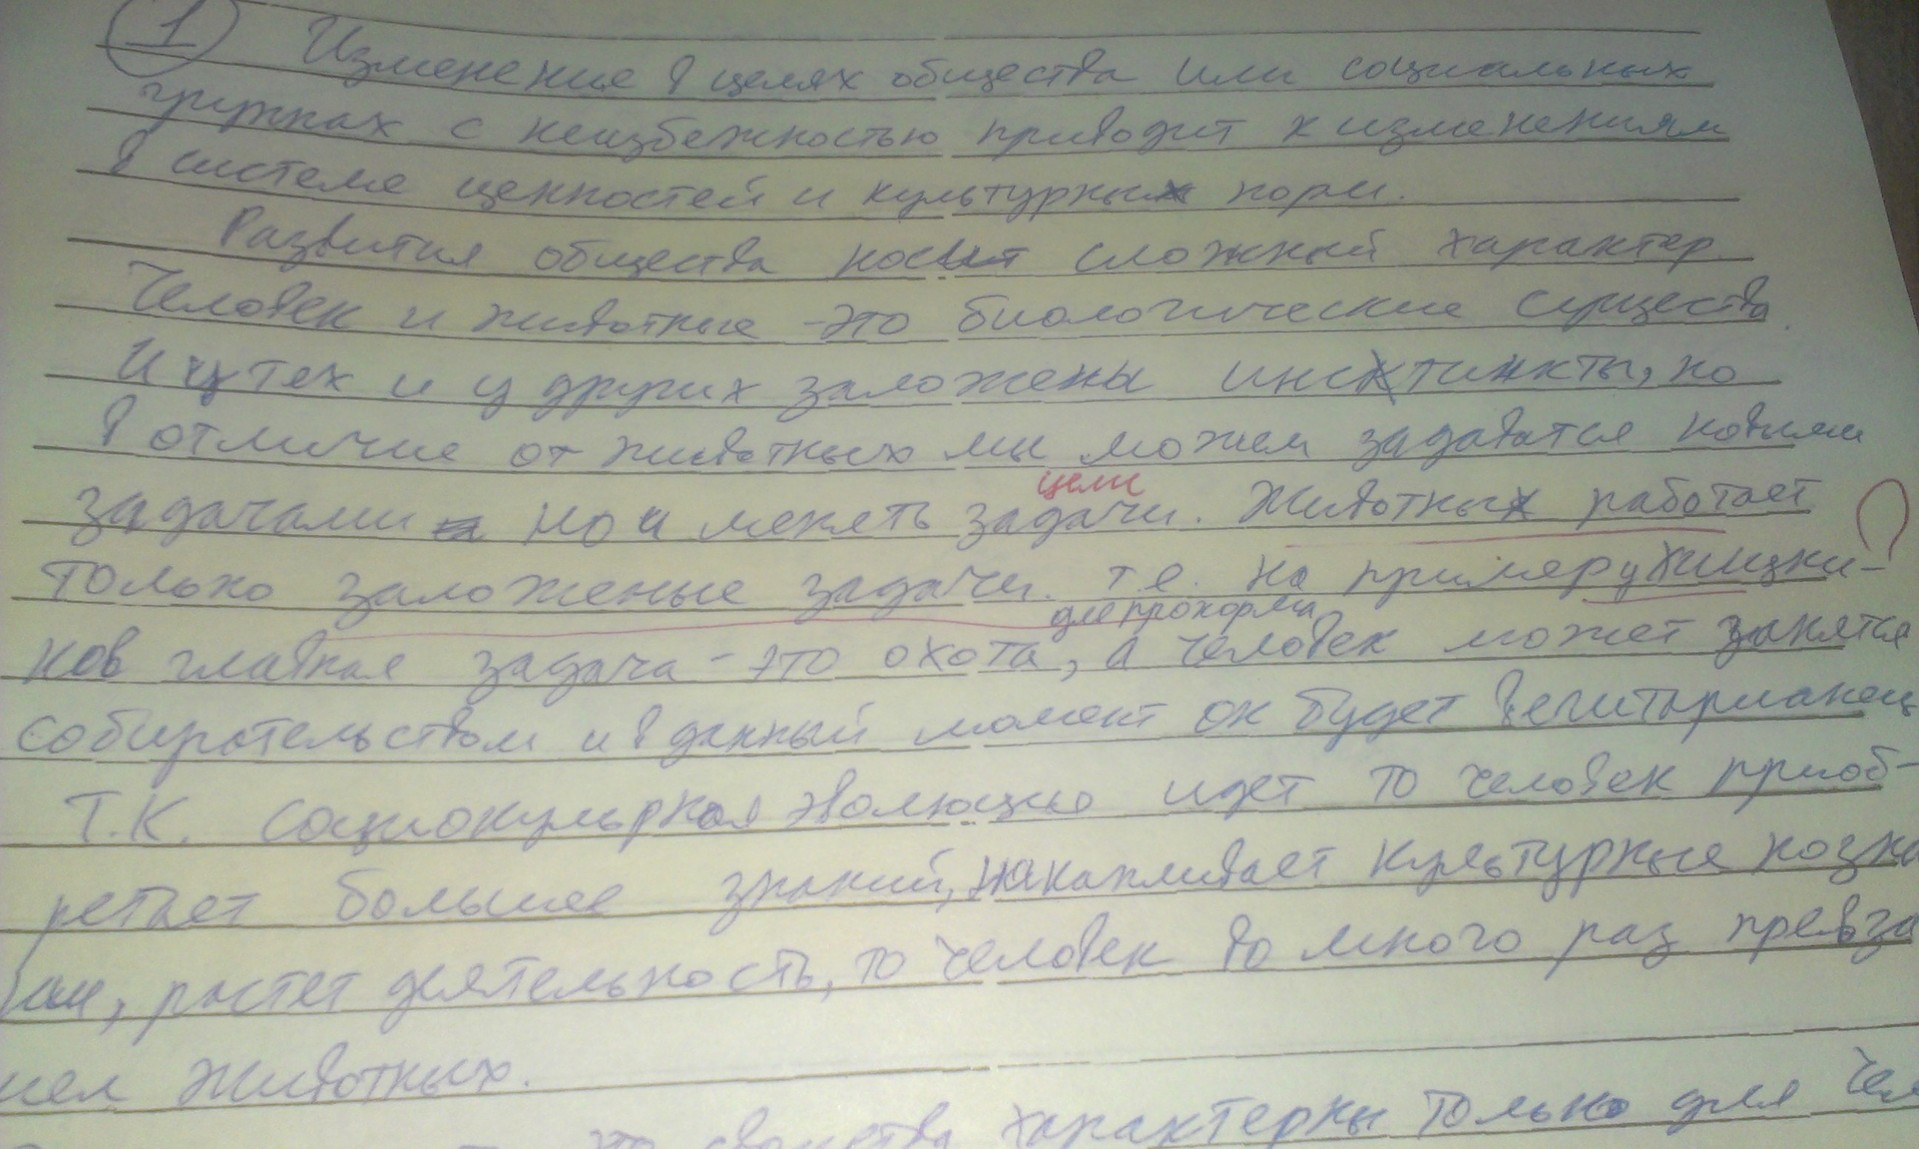 1 Изменение в целях общества или социальных
группах с неизбежностью приводит к изменениям
в системе ценностей и культурных норм.
Развития общества носит сложный характер.
Человек и животные - это биологические существа.
И у тех и у других заложены инстинкты, но
в отличие от животных мы можем задаватся новыми
цели
задачами но и менять задачи. Животных работает ?
только заложеные задачи. т.е. на пример у хищни-
для прокорма
ков главная задача - это охота, а человек может занятся
собирательством и в данный момент он будет вегитарианец
Т.К. социокульрная эволюцыо идет то человек приоб-
ретает большее знаний, накапливает культурные позна
ния, ростет деятельность, то человек во много раз превзо
шел животных.
это свойства характерны только для чел